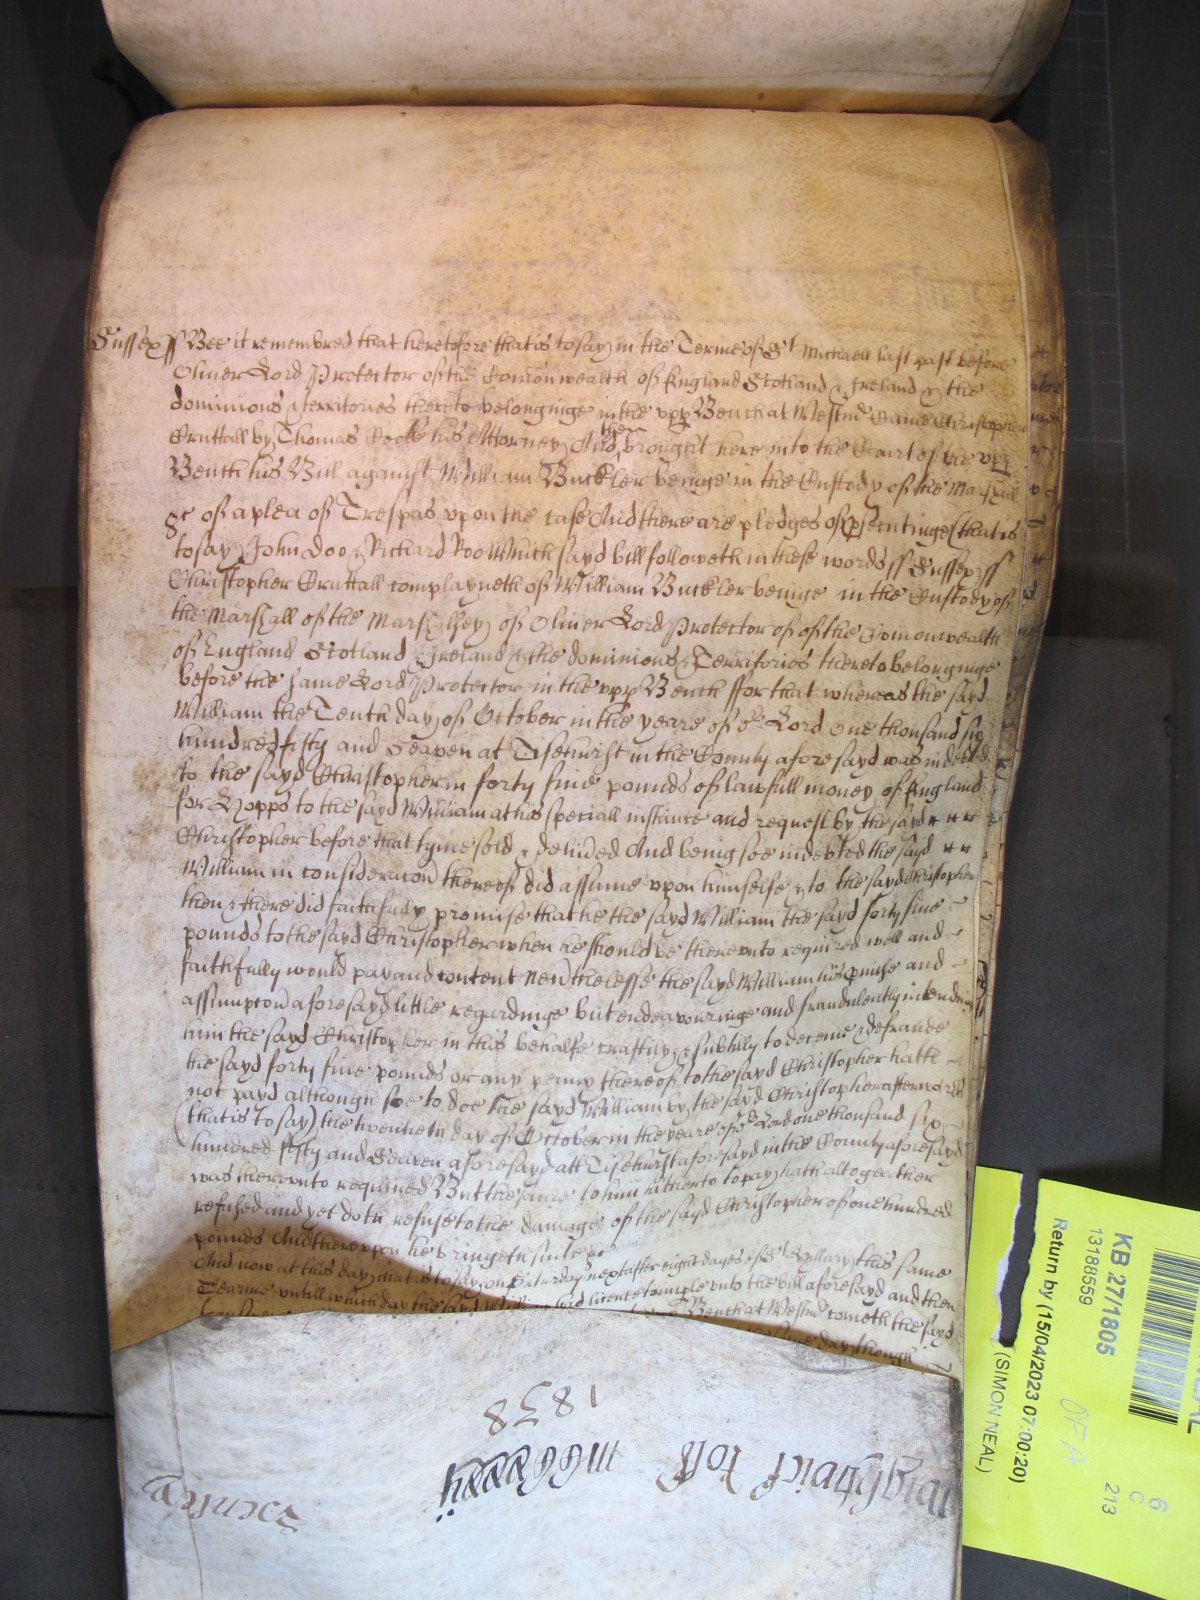 Sussex ss Bee it remembred that heretofore that is to say in the Terme of St Michaell last past before
Oliver Lord Protector of the Comonwealth of England Scotland & Ireland & the
dominions & territories thereto belonginge in the upp Bench at Westmr Came Christopher
Cruttall by Thomas Cooke his Attorney And then brought here into the Court of the upp
Bench his Bill against William Buckler beinge in the Custody of the Marshall
&c of a plea of Trespas upon the case And there are pledges of psecutinge (that is
to say) John Doo & Richard Roo Which sayd bill followeth in these words ss Sussex ss
Christopher Cruttall complayneth of William Buckler beinge in the Custody of
the Marshall of the Marshalsey of Oliver Lord Protector of of the Comonwealth
of England Scotland & Ireland & the dominions & Territories thereto belonginge
before the same Lord Protector in the upp Bench ffor that whereas the sayd
William the Tenth day of October in the yeare of or Lord One thousand six
hundred fifty and seaven at Tisehurst in the County aforesayd was indebted
to the sayd Christopher in forty five pounds of lawfull money of England
for Hopps to the sayd William at his speciall instance and request by the sayd
Christopher before that tyme sold & delived And being soe indebted the sayd
William in consideracon thereof did assume upon himselfe & to the sayd Christopher
then & there did faithfully promise that he the sayd William the sayd forty five
pounds to the sayd Christopher when he should be thereunto required well and
faithfully would pay and content Nevthelesse the sayd William his pmise and
assumpcon aforesayd little regardinge but endeavouringe and fraudulently intendinge
him the sayd Christopher in this behalfe craftily & subtilly to deceive & defraude
the sayd forty five pounds or any penny thereof to the sayd Christopher hath
not payd although soe to doe the sayd William by the sayd Christopher afterwards
(that is to say) the twentieth day of October in the yeare of or Lord one thousand six
hundred fifty and Seaven aforesayd att Tisehurst aforesayd in the County aforesayd
was thereunto required But the same to him hitherto to pay hath altogeather
refused and yet doth refuse to the damage of the sayd Christopher of one hundred
pounds And thereupon he bringeth suite &c
And now at this day that is to say on Saturday next after eight dayes of St Hillary this same
Tearme untill which day the sayd William had licence to imple unto the bill aforesayd and then
Bench at Westmr cometh the sayd
same day though
1838
Hillary
roll
KB 27/1805
13188559
Return by (15/04/2023 07:00:20)
(SIMON NEAL)
6
C
213